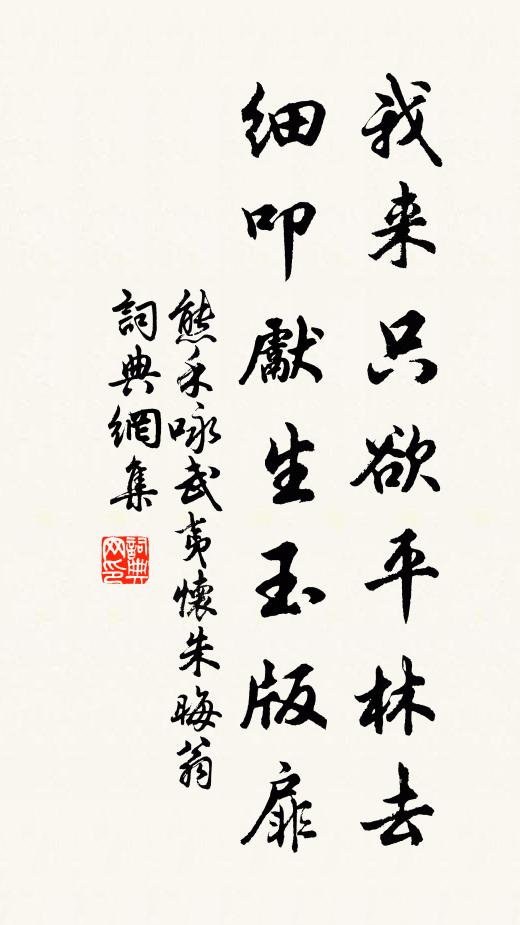 我来只欲平林去
细叩獻生玉版扉
熊禾咏武夷懷朱晦翁
詞典網集
詞典网印